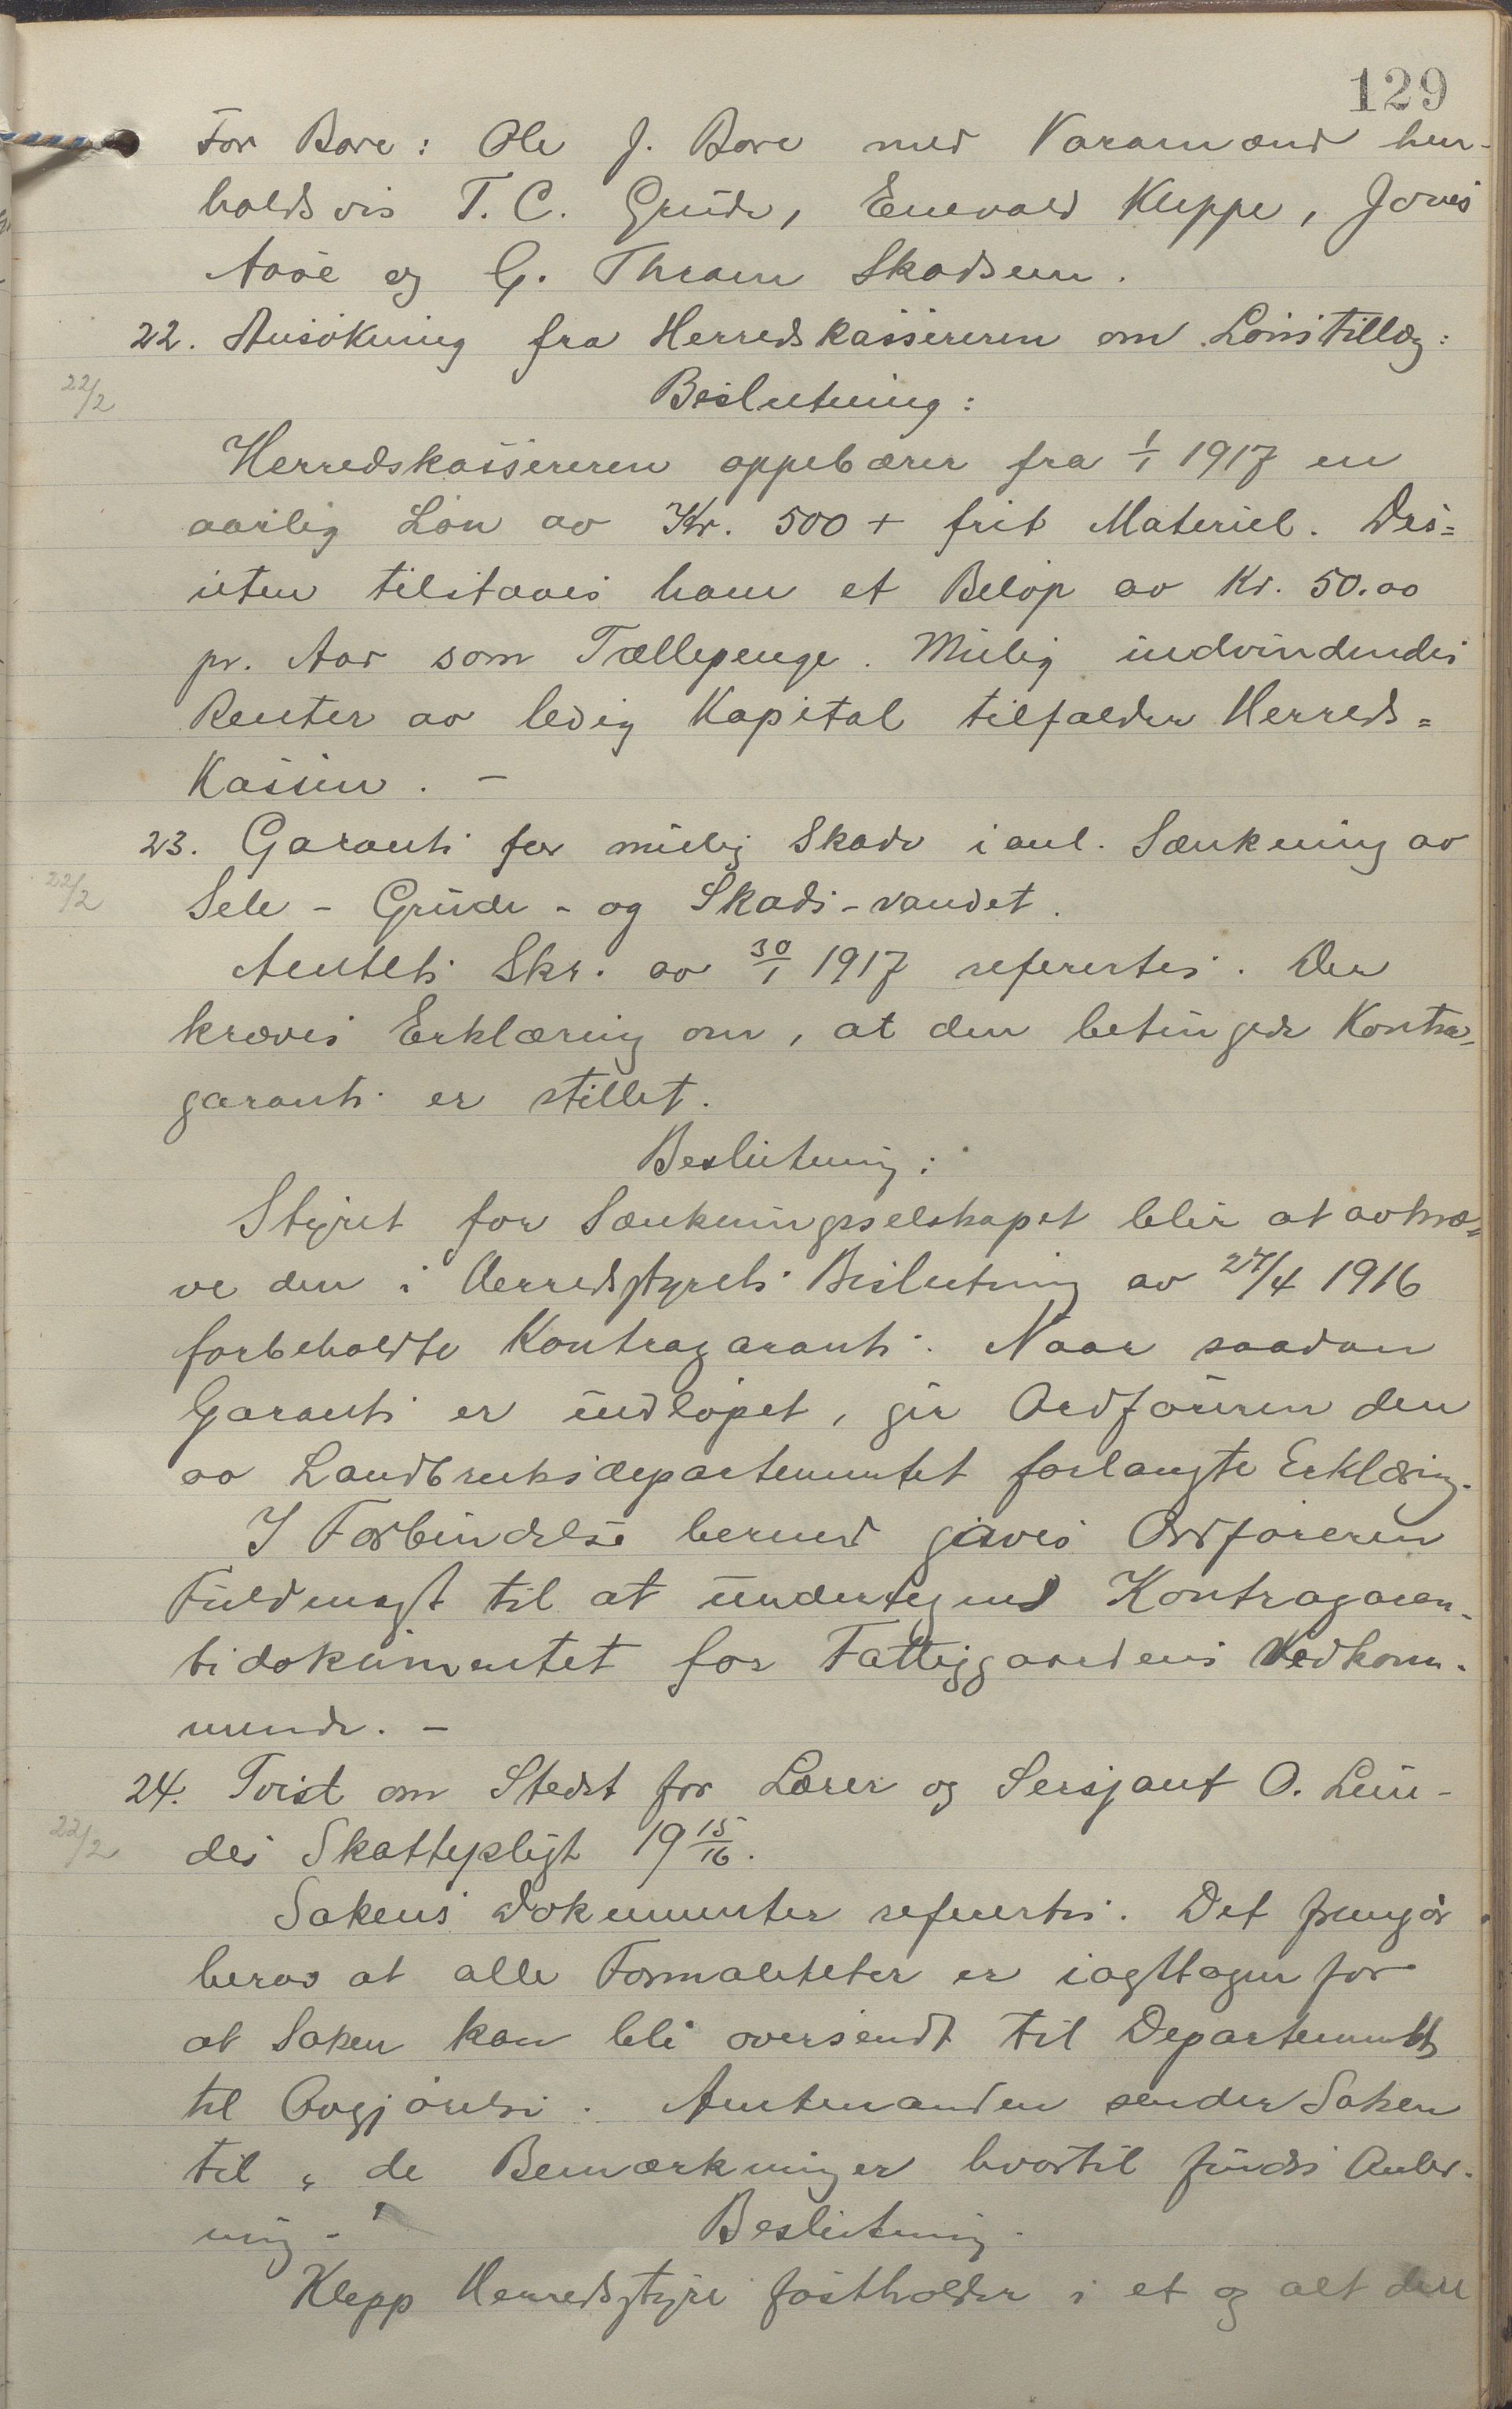 129
For Bore: Ole J. Bore med Varamænd hen-
holdsvis T. C. Grude, Enevald Kleppe, Jones
Aase og G. Thram Skadsem.
22. Ansökning fra Herredskassereren om Lönstillæg:
22/2
Beslutning:
Herredskassereren oppebærer fra 1/1 1917 en
aarlig Lön av Kr. 500 + frit Materiel. Des=
uten tilstaaes ham et Belöp av Kr. 50.00
pr. Aar som Tællepenge. Mulig indvindendes
Renter av ledig Kapital tilfalder Herreds=
kassen. -
23. Garanti for mulig Skade i anl. Sænkning av
22/2
Sele - Grude - og Skads-vandet.
Amtets Skr. av 30/1 1917 refertes. Der
kræves Erklæring om, at den betingede Kontra-
garanti er stillet.
Beslutning:
Styret for Sænkningsselskapet blir at avkræ=
ve den i Herredstyrets Beslutning av 27/4 1916
forbeholdte Kontragaranti. Naar saadan
Garanti er indlöpet, gir Ordföreren den
av Landbruksdepartementet forlangte Erklæring.
I Forbindelse hermed gives Ordföreren
Fuldmagt til at undertegne Kontragaran-
tidokumentet for Fattiggaardens Vedkom-
mende. -
24. Tvist om Stedet for Lærer og Sersjant O. Lun-
22/2
des Skattepligt 19 15/16.
Sakens Dokumenter refertes. Det fremgår
herav at alle Formaliteter er iagttagen for
at Saken kan bli oversendt til Departementet
til Avgjörelse. Amtmanden sender Saken
til „ de Bemærkninger hvortil findes Anled-
ning - "
Beslutning.
Klepp Herredstyre fastholder i et og alt den